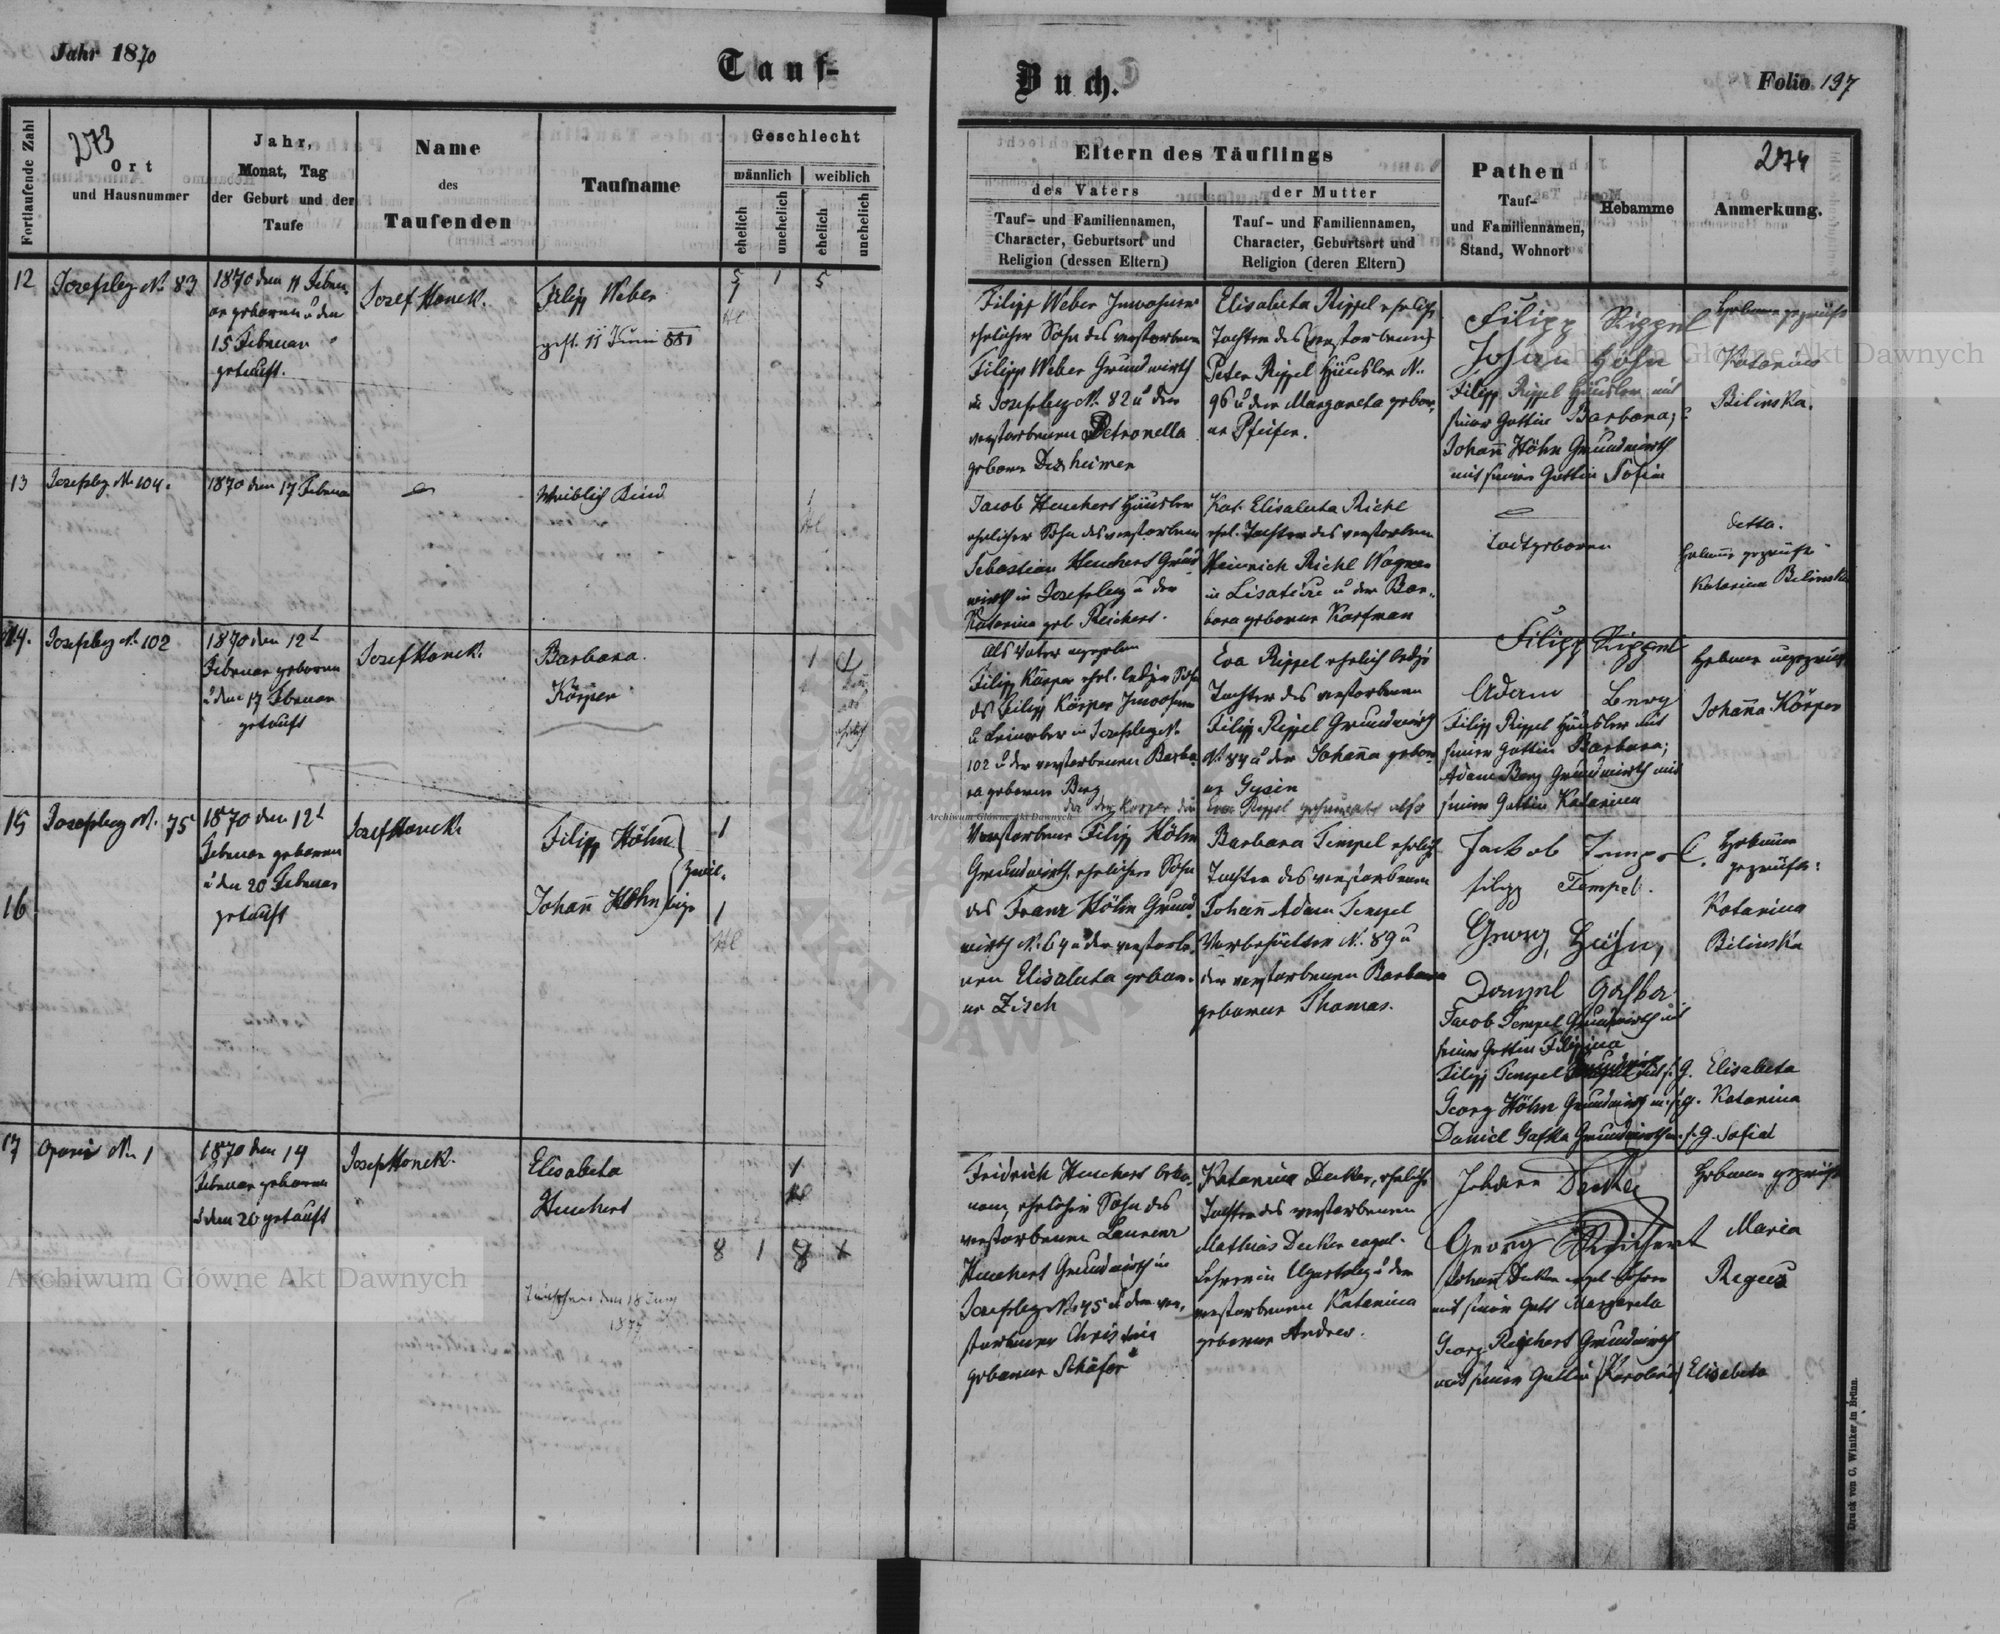 Jahr 1870
Tauf-
Buch.
Folio 197
273
274
Fortlaufende Zahl
Ort
und Hausnummer
Jahr,
Monat, Tag
der Geburt und der
Taufe
Name
des
Taufenden
Taufname
Geschlecht
männlich
weiblich
ehelich
unehelich
ehelich
unehelich
Eltern des Täuflings
des Vaters
Tauf- und Familiennamen,
Character, Geburtsort und
Religion (dessen Eltern)
der Mutter
Tauf- und Familiennamen,
Character, Geburtsort und
Religion (deren Eltern)
Pathen
Tauf-
und Familiennamen,
Stand, Wohnort
Hebamme
Anmerkung.
12
Josefsbg N. 83
1870 den 11 Februar
geboren u den
15 Februar
getauft.
Josef Honek.
Filipp Weber
gest. 11 Juni 881
5 1 5
1
Filipp Weber Inwohner
ehelicher Sohn des verstorbenen
Filipp Weber Grundwirth
in Josefsberg N. 82 u der
verstorbenen Petronella
geborne
Elisabeta Rippel ehelich
Tochter des verstorbenen
Peter Rippel Häusler N.
96 u der Margareta gebor-
ne Pfeifer.
Filipp Rippel
Johan Höhn
Filipp Rippel Häusler mit
seiner Gattin Barbara;
Johann Höhn Grundwirth
mit seiner Gattin Sofia
Hebame geprüfte
Katarina
Bilinska.
13
Josefsbg N. 104.
1870 den 17 Februar
Weiblich Kind
1
Jacob Heuchert Häusler
ehelicher Sohn des verstorbenen
Sebastian Heuchert Grund-
wirth in Josefsberg u der
Katarina geb. Reichert.
Kat. Elisabeta Richl
ehel. Tochter des verstorbenen
Heinrich Richl Wagner
in u der Bar-
bara geborne Kaufman
Todtgeboren
detto.
Hebame geprüfte
Katarina Bilinska
14.
Josefsbg N. 102
1870 den 12t
Februar geboren
u den 17 Februar
getauft
Josef Honek.
Barbara
Körper
1
Als Vater angegeben
Filipp Körper ehel. lediger Sohn
des Filipp Körper Inwohner
u Leinweber in Josefsberg N.
102 u der verstorbenen Barba-
ra geborene Berg
Eva Rippel ehelich ledige
Tochter des verstorbenen
Filipp Rippel Grundwirth
N. 84 u der Johanna gebor-
ne
Filipp Rippel
Adam Berg
Filipp Rippel Häusler mit
seiner Gattin Barbara;
Adam Berg Grundwirth mit
seiner Gattin Katarina
Hebame ungeprüfte
Johanna Körper
15
Josefsberg N. 75
1870 den 12t
Februar geboren
u den 20 Februar
getauft
Josef Honek.
Filipp Höhn
1
16
Johann Höhn
Zwil-
linge
1
Verstorbener Filipp Höhn
Grundwirth, ehelicher Sohn
des Franz Höhn Grund-
wirth N. 64 u der verstorbe-
nen Elisabeta gebor-
ne Zisch
Barbara Tempel ehelich
Tochter des verstorbenen
Johann Adam Tempel
Vorbehälter N. 89 u
der verstorbenen Barbara
geborene Thomas.
Jackob Tempel
filipp Tempel.
Georg Höhn,
Jacob Tempel Grundwirth mit
seiner Gattin Filippina
Filipp Tempel Grundwirth mit s. G. Elisabeta
Georg Höhn Grundwirth m. s. G. Katarina
Daniel Gafka Grundwirth m. s. G. Sofia
Hebame
geprüfte:
Katarina
Bilinska
17
Opari N. 1
1870 den 14
Februar geboren
u dem 20 getauft
Josef Honek.
Elisabeta
Heuchert
1
8 1 8 1
Fridrich Heuchert Oeko-
nom, ehelicher Sohn des
verstorbenen Laurenz
Heuchert Grundwirth in
Josefsberg N. 75 u der ver-
storbenen Christine
geborene Schäfer
Katarina Decker, eheliche
Tochter des verstorbenen
Mathias Decker evgel.
Lehrer in Ugartsberg u der
verstorbenen Katarina
geborene Andres.
Johann Decker
Georg Reichert
Johann Decker evgel. Lehrer
mit seiner Gatt Margareta
Georg Reichert Grundwirth
mit seiner Gattin (Karolina) Elisabeta
Hebame geprüfte
Maria
Archiwum Główne Akt Dawnych
Archiwum Główne Akt Dawnych
Archiwum Główne Akt Dawnych
Druck von C. Winiker in Brünn.